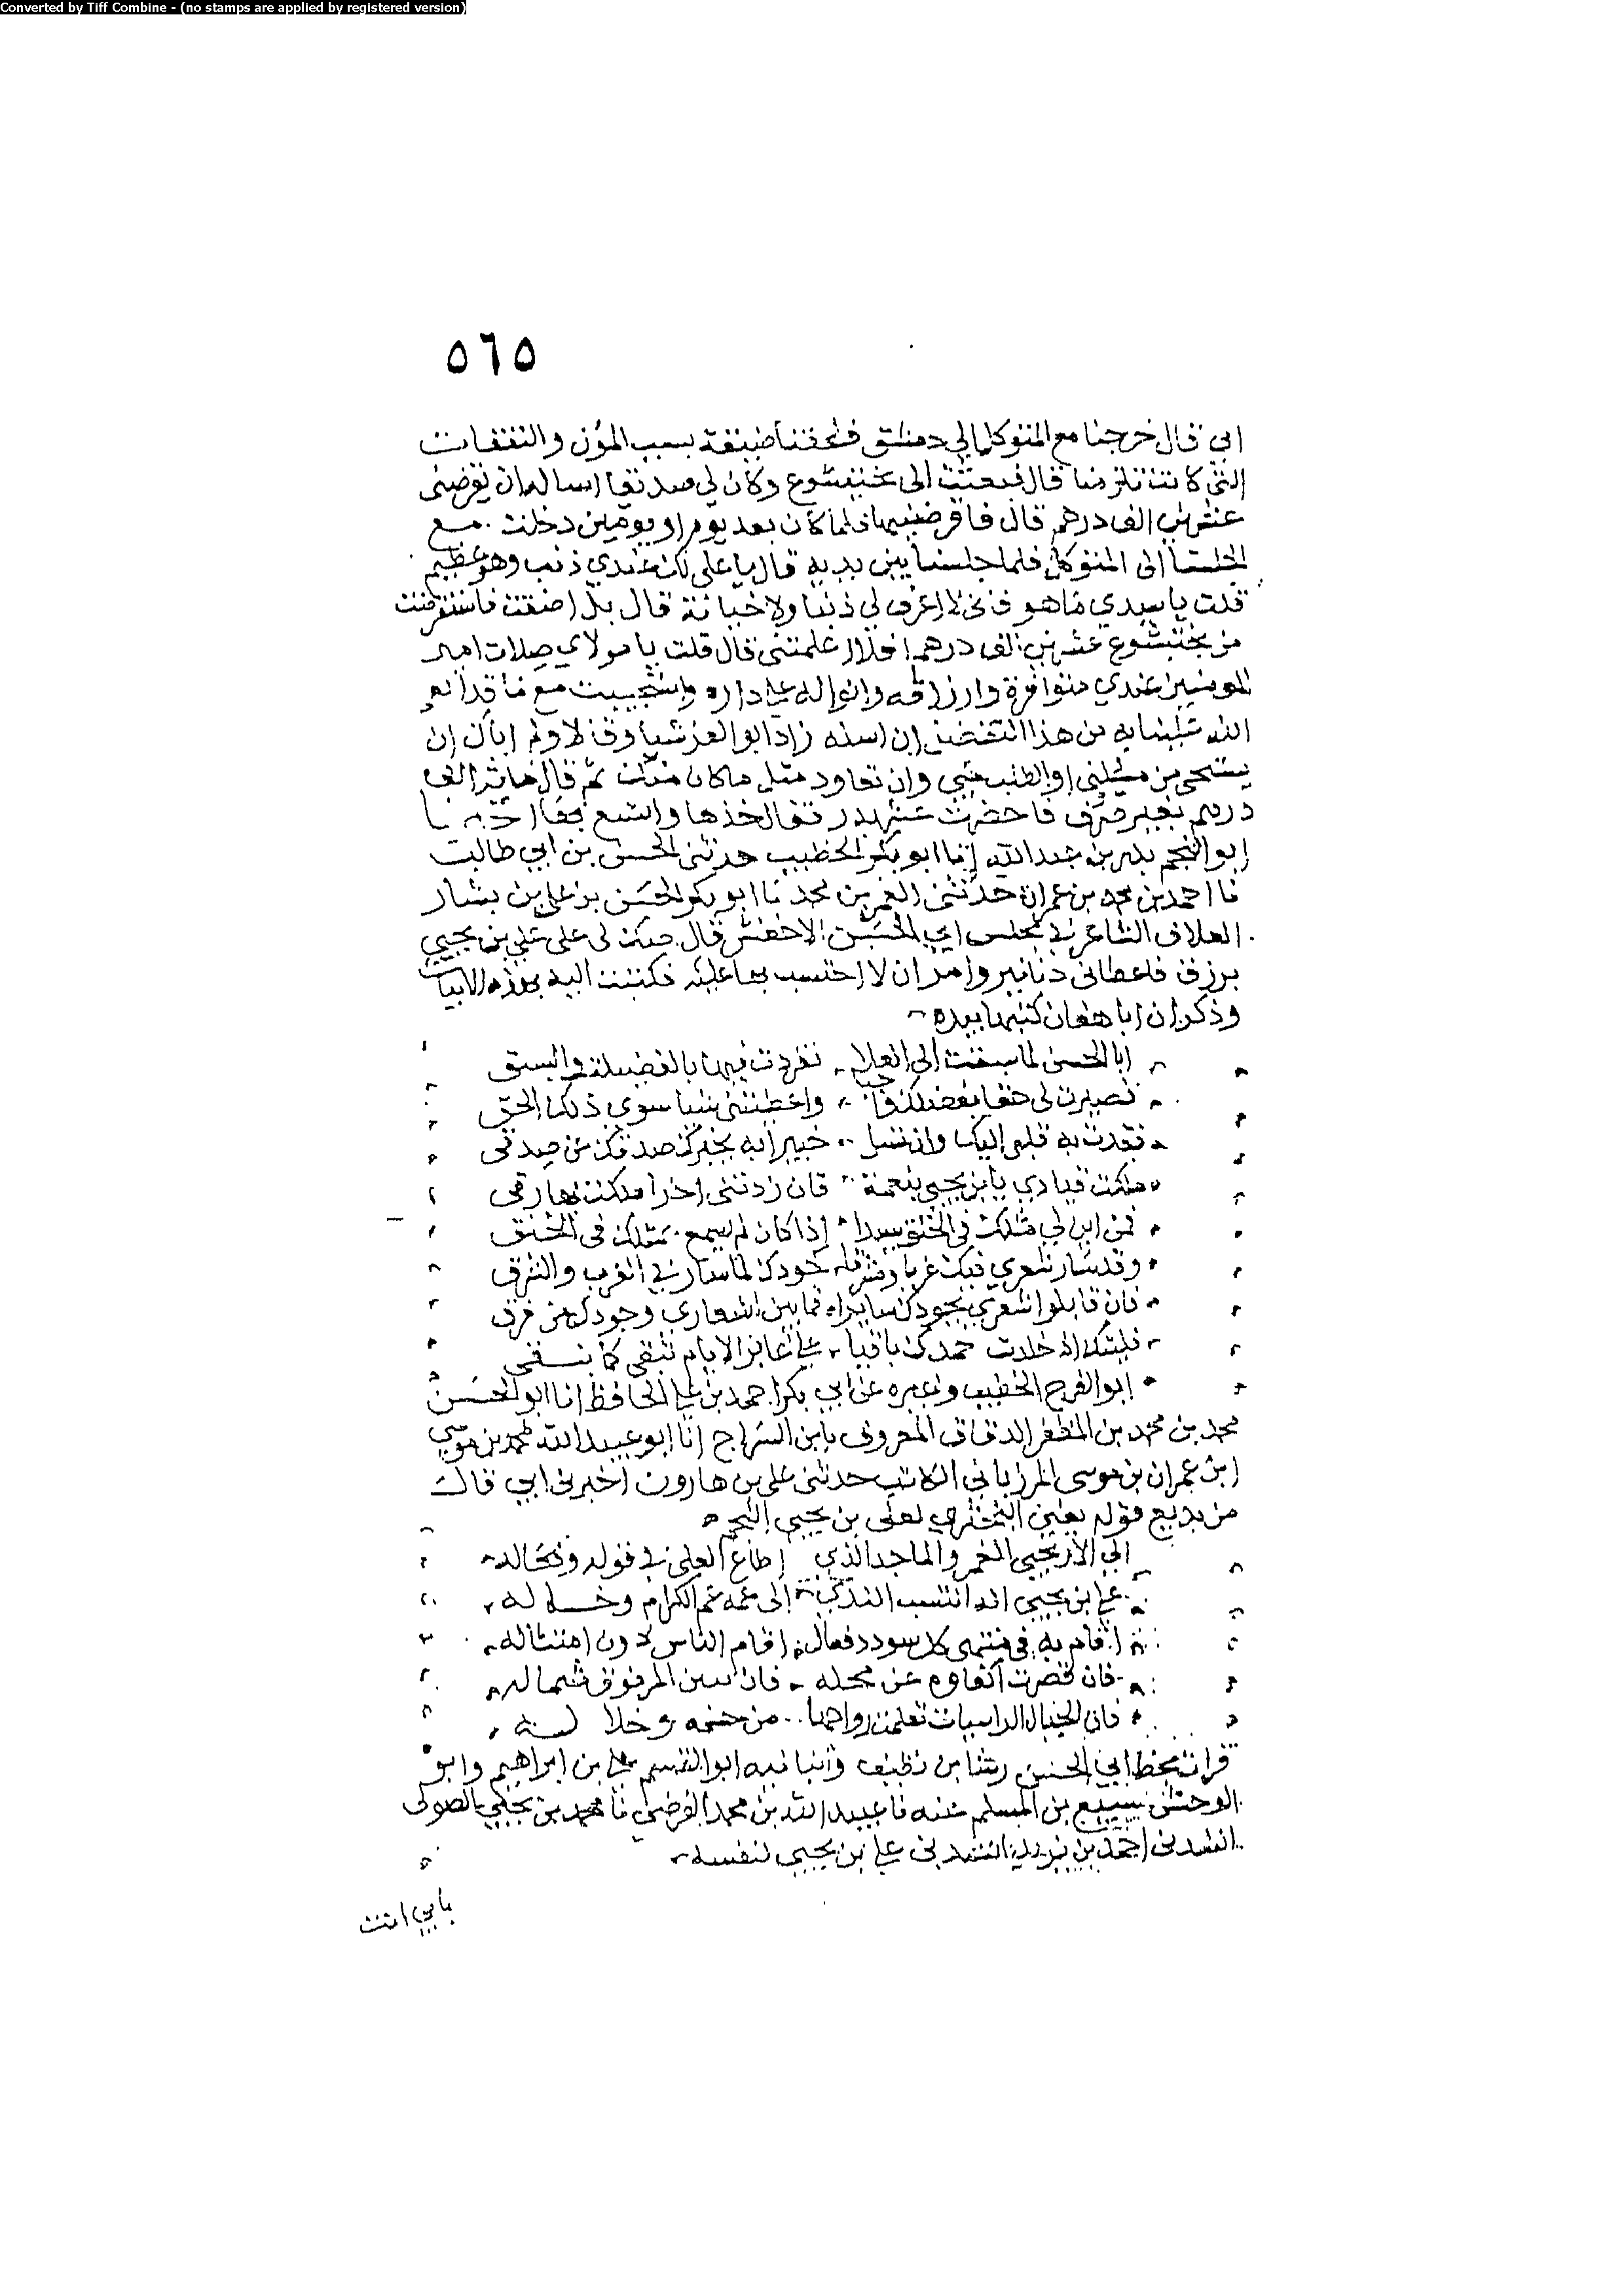 Converted by Tiff Combine - (no stamps are applied by registered version)
٥٦٥
ابي قال خرجنا مع المتوكل الي دمشق فلحقتنا ضيقة بسبب المؤن والنفقات
التي كانت تلزمنا قال فبعثت الى بختيشوع وكان لي صديقا اساله ان يقرضني
عشرين الف درهم قال فاقرضنيها فلما كان بعد يوم او يومين دخلت مع
الجلسا الى المتوكل فلما جلسنا بين يديه قال يا على لك عندي ذنب وهو عظيم
قلت يا سيدي ما هو فاني لا اعرف لي ذنبا ولا خيانة قال بلى اضقت فاستقرضت
من بختيشوع عشرين الف درهم افلا اعلمتني قال قلت يا مولاي صلات امير
المومنين عندي متواترة وارزاقه وانزاله علي داره واستحييت مع ما قد انعم
الله علينا به من هذا التفضل ان اساله زاد ابو العز شيا وقال ولم ان
يستحي من مسلتي او الطلب مني وان تعاود مثل ما كان منك ثم قال ماية الف
درهم بغير صرف فاحضرت عشر بدر فقال خذها واتسع بها
ابو النجم بدر بن عبد الله انا ابو بكر الخطيب حدثني الحسن بن ابي طالب
نا احمد بن محمد بن عمران حدثني العمر بن محمد نا ابو بكر الحسن بن علي بن بشار
العلاف الشاعر في مجلس ابي الحسن الاخفش قال صك لي على علي بن يحيى
برزق فاعطاني دنانير وامر ان لا احتسب بها عليه فكتبت اليه بهذه الابيات
وذكر ان ابا هفان كتبها بيده
ابا الحسن لما سبقت الي العلا تفردت فيها بالفضيلة والسبق
تصيرت لي حقا بفضلك واجبا واعطيتني شيا سوي ذلك الحق
فقدت به قلبي اليك وان تسل خبيرا به يخبرك صدقك عن صدقي
ملكت قيادي يا بن يحيى بنعمة فان زدتني اخرا ملكت بها رقي
فمن اين لي مثلك في الخلق سيدا اذا كان لم يسمع بمثلك في الخلق
وقد سار شعري فيك غربا ومشرقا كجودك لما سار في الغرب والشرق
فان قابلوا شعري بجودك سايرا فما بين اشعاري وجودك من فرق
فليتك اذ خلدت حمدك باقيا على غابر الايام تبقى كما يبقى
ابو الفرج الخطيب وغيره عن ابي بكر احمد بن علي الحافظ انا ابو الحسن
محمد بن محمد بن المظفر الدقاق المعروف بابن السراج انا ابو عبيد الله محمد بن موسي
ابن عمران بن موسى المرزباني الكاتب حدثني علي بن هارون اخبرني ابي قال
من بديع قوله يعني البحتري لعلي بن يحيى المنجم
الي الاريحي الغمر والماجد الذي اطاع العلى في قوله وفعاله
علي بن يحيى انه انتسب الندى الى عمه عم الكرام وخاله
اقام به في منتهى كل سودد فعال اقام الناس دون امتثاله
فان قصرت اكفاوه عن محله فان يمين المرفوق شماله
فاني الجبال الراسيات تعلمت رواحها من حلمه وخلاله
قرات بخط ابي الحسن رشا بن نظيف وانبانيه ابو القسم علي بن ابراهيم وابو
الوحش سبيع بن المسلم عنه نا عبيد الله بن محمد الفرضي نا محمد بن يحيى الصولى
انشدني احمد بن يزيد انشدني علي بن يحيى لنفسه
بابي انت